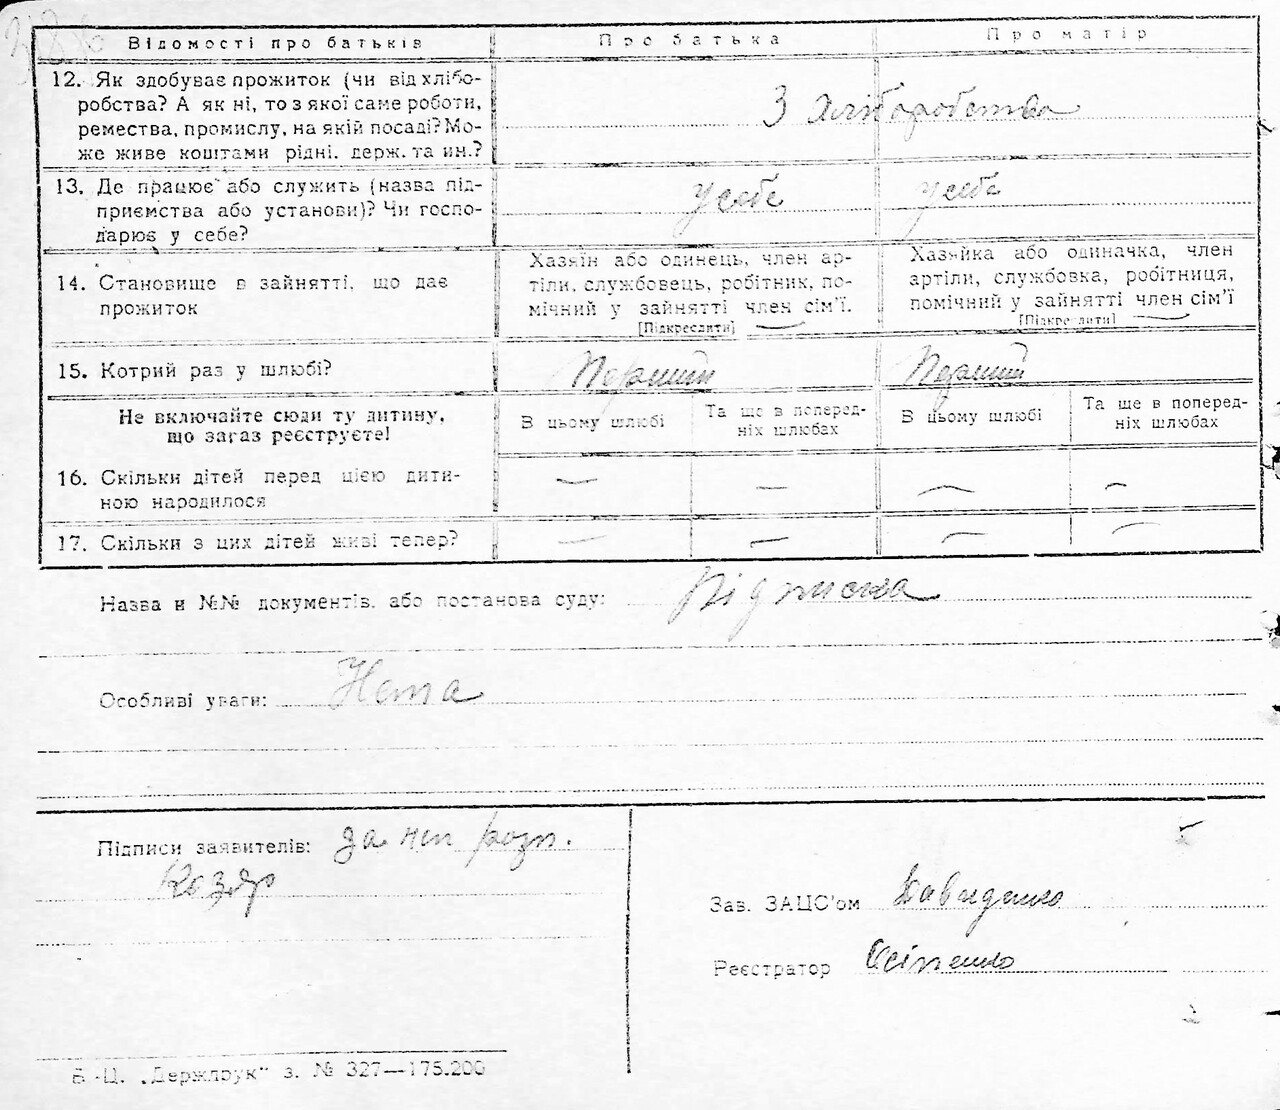 Відомості про батьків Про батька Про матір
12. Як здобуває прожиток (чи від хлібо-
робства? А як ні, то з якої саме роботи,
ремества, промислу, на якій посаді? Мо-
же живе коштами рідні, держ. та ин.?
З хліборобства
13. Де працює або служить (назва під-
приємства або установи)? Чи госпо-
дарює у себе?
у себе у себе
14. Становище в зайнятті, що дає
прожиток
Хазяїн або одинець, член ар-
тіли, службовець, робітник, по-
мічний у зайнятті член сім’ї.
[Підкреслити]
Хазяйка або одиначка, член
артіли, службовка, робітниця,
помічний у зайнятті член сім’ї
[Підкреслити]
15. Котрий раз у шлюбі? Перший Перший
Не включайте сюди ту дитину,
що загаз реєструєте!
В цьому шлюбі
Та ще в поперед-
ніх шлюбах
В цьому шлюбі
Та ще в поперед-
ніх шлюбах
16. Скільки дітей перед цією дити-
ною народилося
— — — —
17. Скільки з цих дітей живі тепер? — — — —
Назва и №№ документів, або постанова суду: Підписка
Особливі уваги: Нема
Підписи заявителів: за неп розп.
Козяр
Зав. ЗАЦС'ом Давиденко
Реєстратор Осіпенко
Б.-Ц. „Держдрук“ з. № 327—175.200